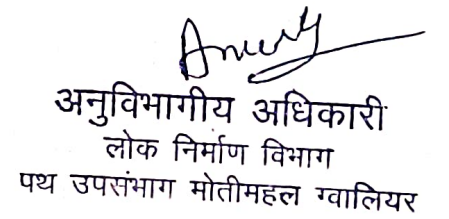 अनुविभागीय अधिकारी
लोक निर्माण विभाग
पथ उपसंभाग मोतीमहल ग्वालियर